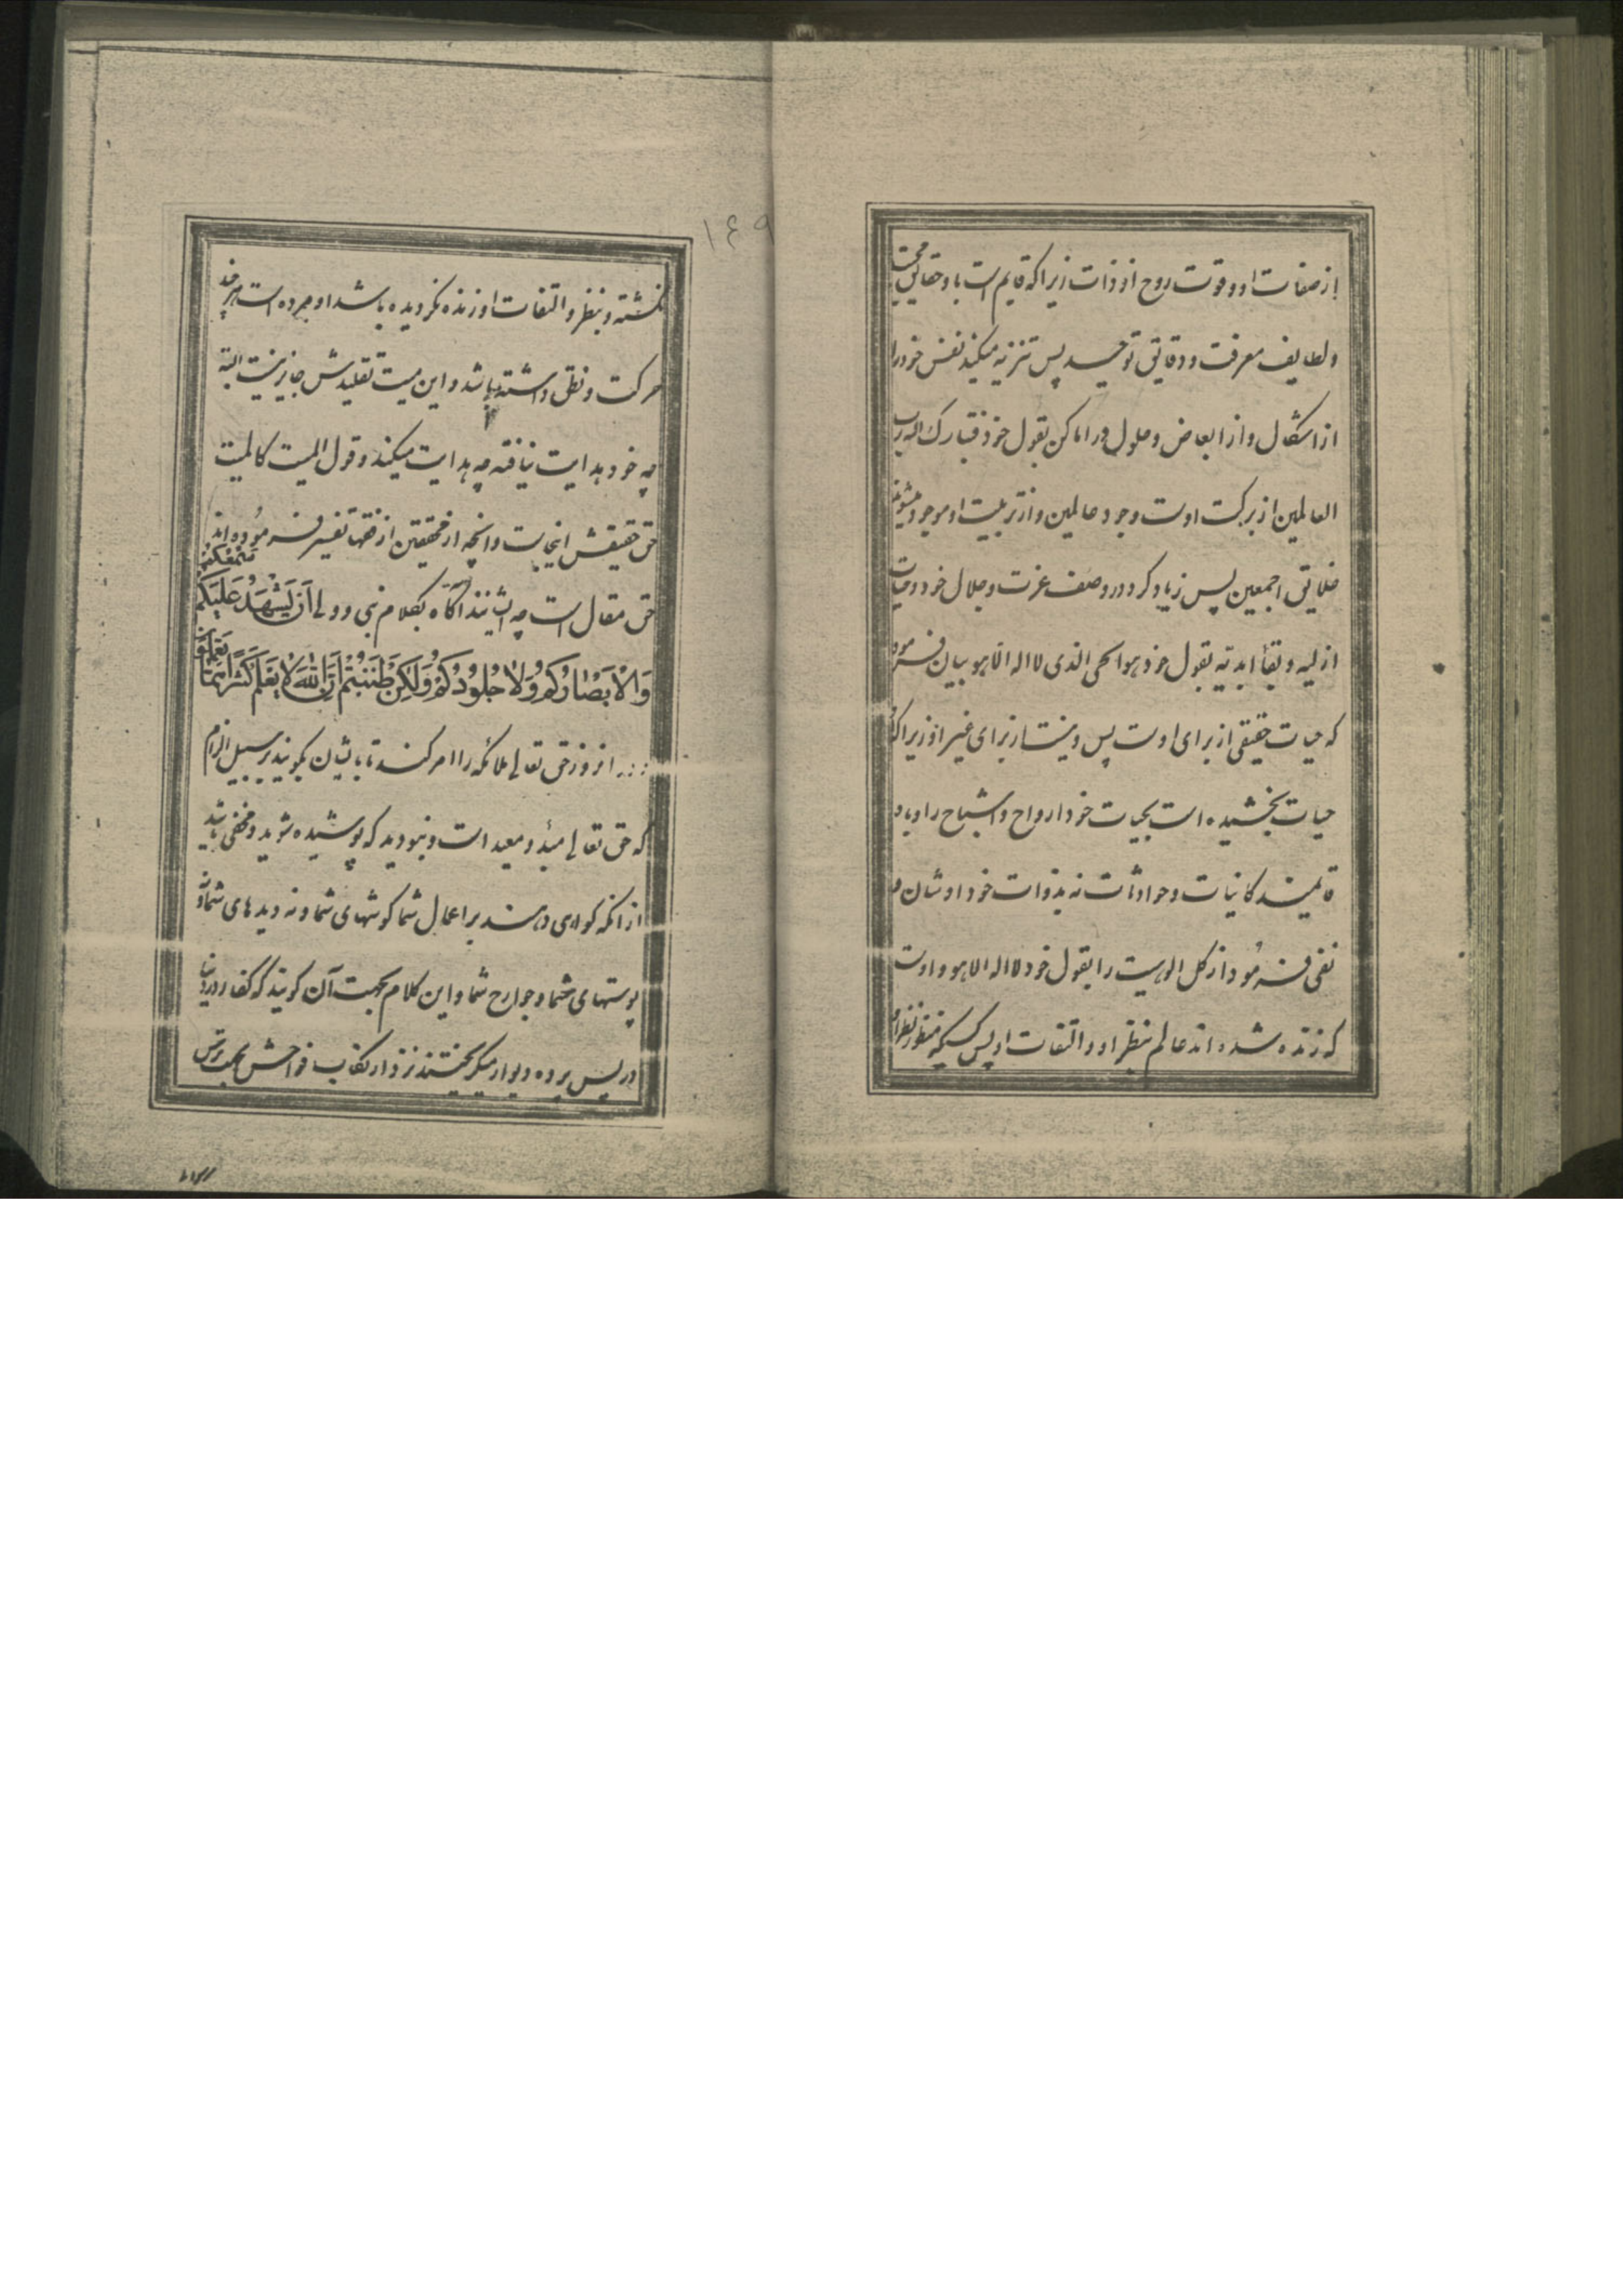 از صفات او و قوت روح از و ذات زیرا که قایم است باو حقایق محبت
و لطایف معرفت و دقایق توحید پس تنزیه میکند نفس خود را
از اشکال و از ابعاض و حلول در اماکن بقول خود فتبارک الله رب
العالمین از برکت اوست وجود عالمین و از تربیت او موجود میشوند
خلایق اجمعین پس زیاد کرد در وصف عزت و جلال خود و حیات
ازلیه و بقأ ابدیه بقول خود هو الحی الذی لا اله الا هو بیان فرمود
که حیات حقیقی از برای اوست پس و نیست از برای غیر او زیرا که
حیات بخشیده است بحیات خود ارواح و اشباح را و باو
قایمند کاینات و حوادثات نه بذوات خود اوشان و
نفی فرمود از کل الوهیت را بقول خود لا اله الا هو و اوست
که زنده شده اند عالم بنظر او و التفات او پس کسیکه منظور نظر او
نگشته و بنظر و التفات او زنده نگردیده باشد او مرده است هر چند
حرکت و نطق داشته باشد و این میت تقلیدش جایز نیست البته
چه خود هدایت نیافته چه هدایت میکند و قول المیت کالمیت
حق حقیقش اینجاست و آنچه از محققین از فقها تفسیر فرموده اند
حق مقال است چه ایشانند آگاه بکلام نبی و ولی أن یشهد علیکم سمعکم
ولا أبصارکم ولا جلودکم ولکن ظننتم أن الله لا یعلم کثیرا مما تعملون
انروز حق تعالی ملائکه را امر کند تا باایشان بگویند بر سبیل الزام
که حق تعالی مبدٔ و معید است و نبودید که پوشیده شوید و مخفی باشید
از آنکه کواهی دهند بر اعمال شما کوشهای شما و نه دیدهای شما و نه
پوستهای شما و جوارح شما و این کلام بجهت آن کویند که کفار در دنیا
در پس پرده و دیوار میکریختند نزد ارتکاب فواحش بجهت ترس
١٤٩